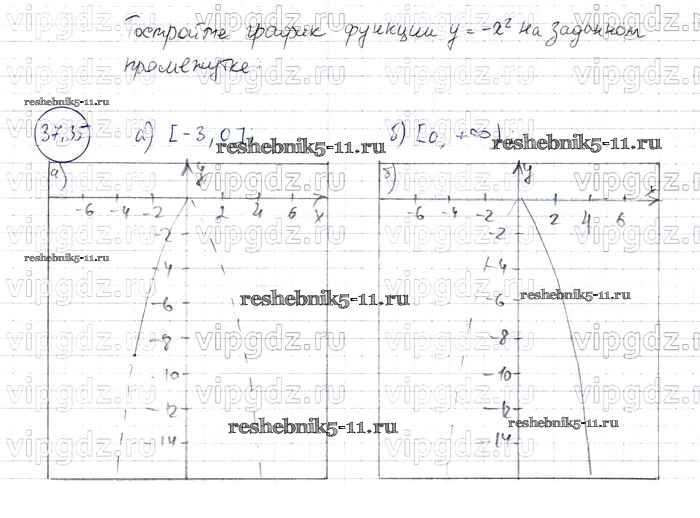 Постройте график функции y = -x² на заданном
промежутке.
reshebnik5-11.ru
37.35 а) [-3, 0]; б) [0, +∞)
reshebnik5-11.ru reshebnik5-11.ru
а) y б) y
-6 -4 -2 2 4 6 x -6 -4 -2 2 4 6 x
-2 -2
reshebnik5-11.ru
-4 -4
reshebnik5-11.ru reshebnik5-11.ru
-6 -6
-8 -8
-10 -10
-12 -12
reshebnik5-11.ru reshebnik5-11.ru
-14 -14
vipgdz.ru